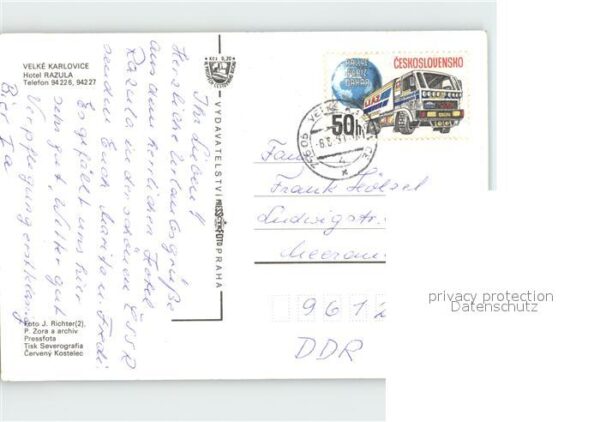 VELKÉ KARLOVICE
Hotel RAZULA
Telefon 94226, 94227
Kčs 0,20
Ihr Lieben!
Herzliche Urlaubsgrüße
aus dem herrlichen Hotel
Razula in der schönen ČSSR
senden Euch Marita u. Fredi.
Es gefällt uns hier
sehr gut, Wetter gut
Verpflegung erstklassig
Bier I a
Foto J. Richter(2),
P. Zora a archiv
Pressfota
Tisk Severografia
Červený Kostelec
VYDAVATELSTVÍ PRESSFOTO PRAHA
ČESKOSLOVENSKO
RALLYE
PAŘÍŽ
DAKAR
LIAZ
50h
756 06 VELKÉ
Fam
Frank
Ludwigstr.
Meeran
961
DDR
privacy protection
Datenschutz